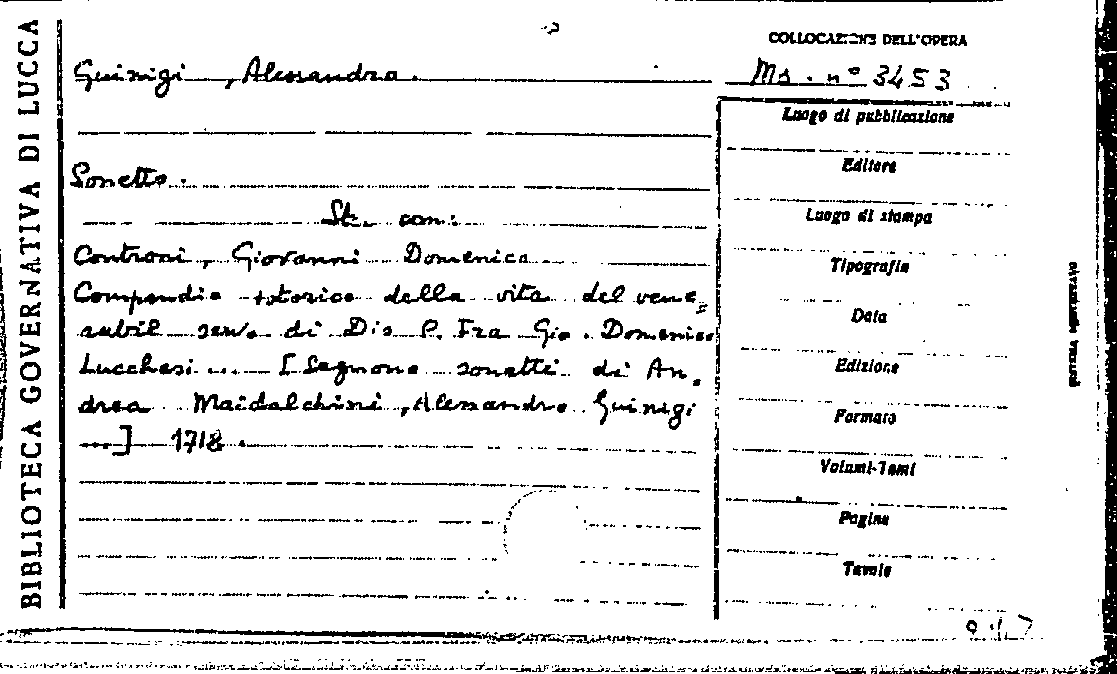 BIBLIOTECA GOVERNATIVA DI LUCCA
COLLOCAZIONE DELL'OPERA
Guinigi, Alessandro.
Ms. n° 3453
Sonetto.
St. con:
Controni, Giovanni Domenico
Compendio storico della vita del vene
rabil servo di Dio P. Fra Gio. Domenico
Lucchesi ... [Seguono sonetti di An
drea Maidalchini, Alessandro Guinigi
...] 1718.
Luogo di pubblicazione
Editore
Luogo di stampa
Tipografia
Data
Edizione
Formato
Volumi-Tomi
Pagine
Tavole